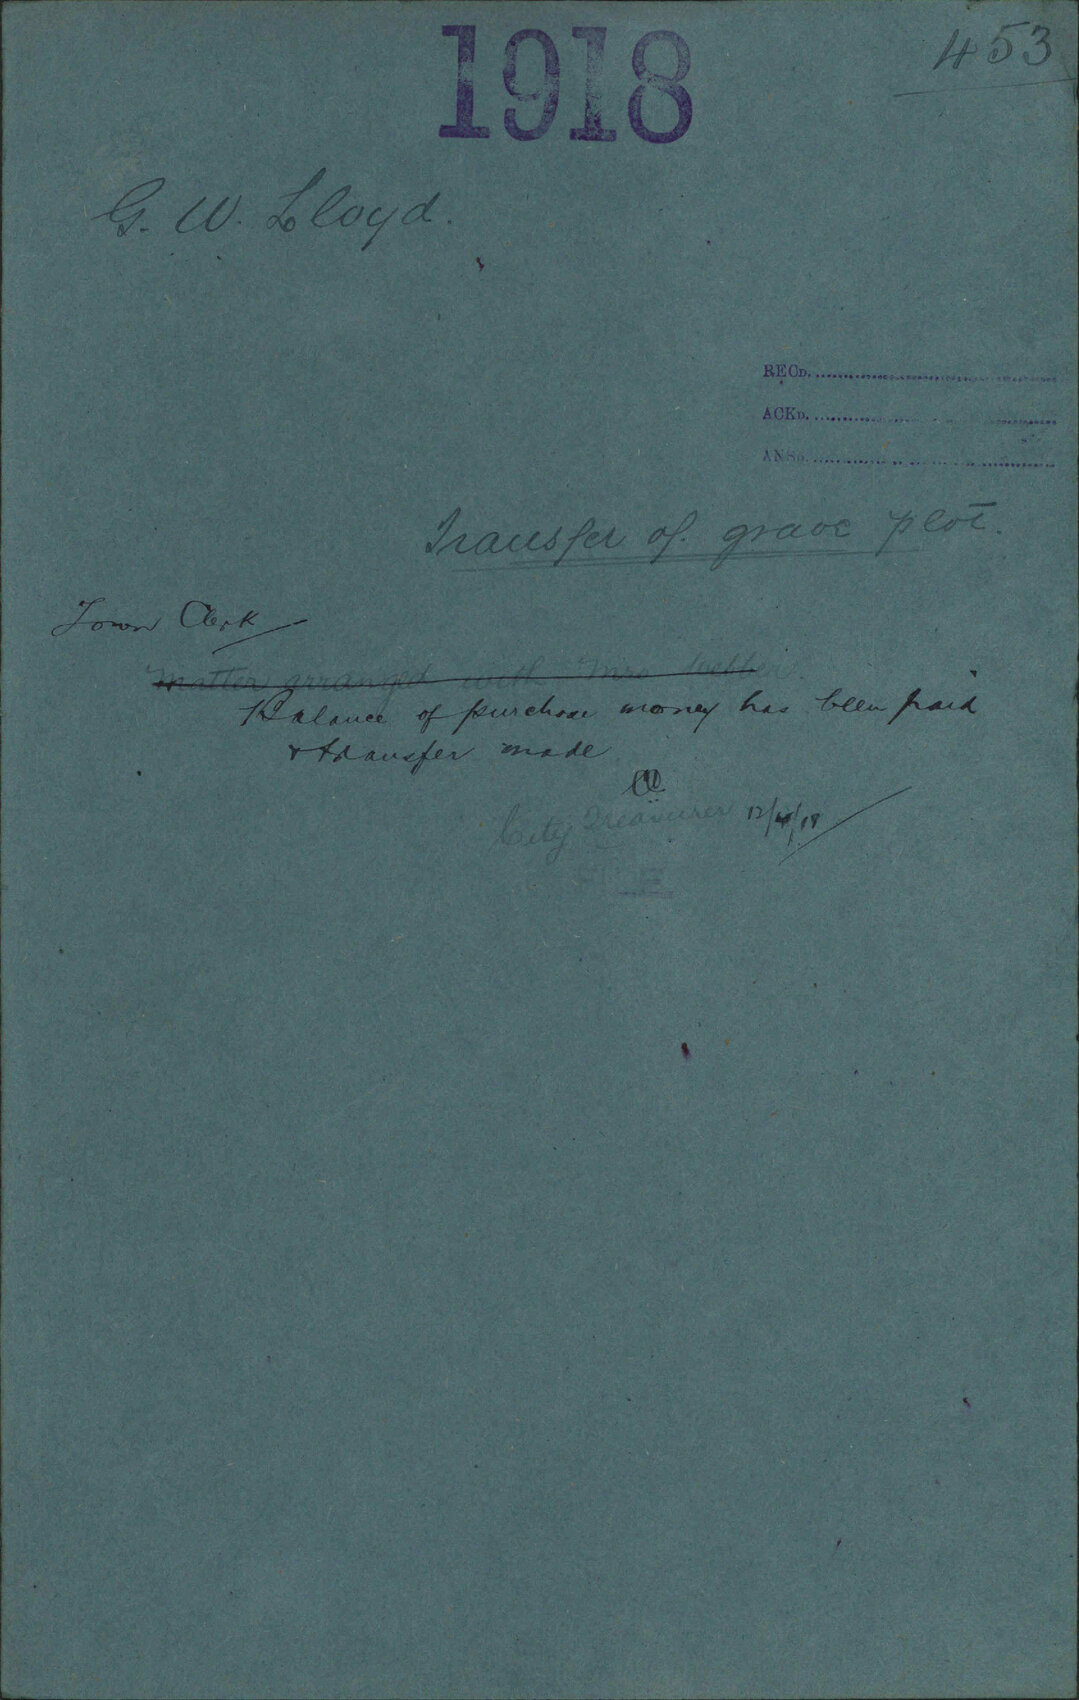 1918
453
G. W. Lloyd.
RECD.
ACKD.
ANSD.
Transfer of grave plot.
Town Clerk
Matter arranged with Mrs Webber.
Balance of purchase money has been paid
& transfer made
City Treasurer 12/4/18